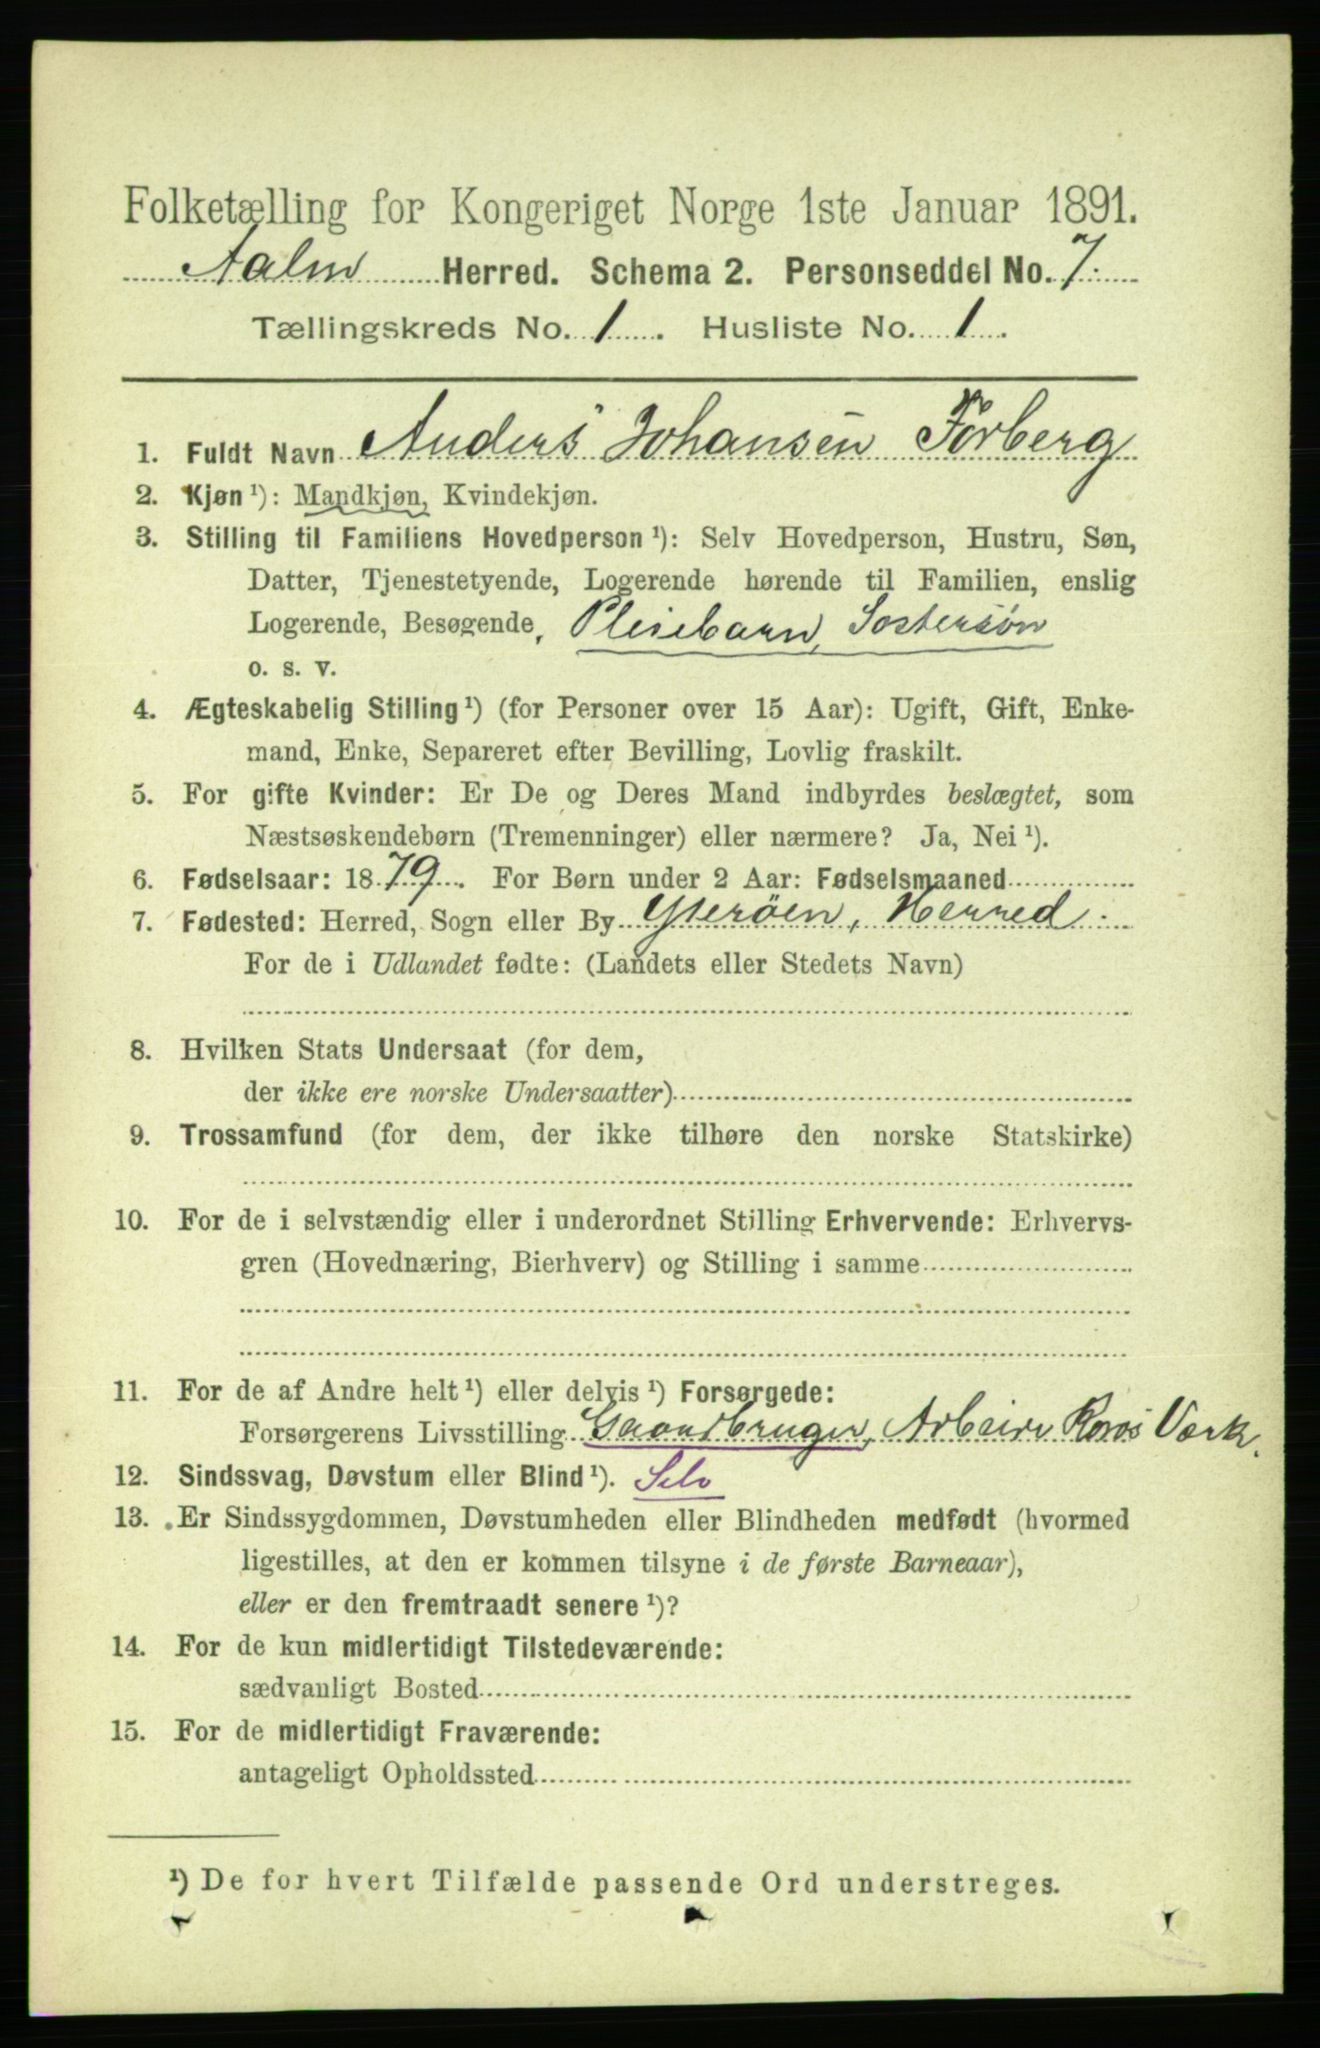 Folketælling for Kongeriget Norge 1ste Januar 1891.
Aalen Herred. Schema 2. Personseddel No. 7.
Tællingskreds No. 1. Husliste No. 1.
1. Fuldt Navn Anders Johansen Forberg
2. Kjøn ¹): Mandkjøn, Kvindekjøn.
3. Stilling til Familiens Hovedperson ¹): Selv Hovedperson, Hustru, Søn,
Datter, Tjenestetyende, Logerende hørende til Familien, enslig
Logerende, Besøgende, Pleiebarn, Sostersøn
o. s. v.
4. Ægteskabelig Stilling ¹) (for Personer over 15 Aar): Ugift, Gift, Enke-
mand, Enke, Separeret efter Bevilling, Lovlig fraskilt.
5. For gifte Kvinder: Er De og Deres Mand indbyrdes beslægtet, som
Næstsøskendebørn (Tremenninger) eller nærmere? Ja, Nei ¹).
6. Fødselsaar: 1879. For Børn under 2 Aar: Fødselsmaaned
7. Fødested: Herred, Sogn eller By Yterøen, Herred.
For de i Udlandet fødte: (Landets eller Stedets Navn)
8. Hvilken Stats Undersaat (for dem,
der ikke ere norske Undersaatter)
9. Trossamfund (for dem, der ikke tilhøre den norske Statskirke)
10. For de i selvstændig eller i underordnet Stilling Erhvervende: Erhvervs-
gren (Hovednæring, Bierhverv) og Stilling i samme
11. For de af Andre helt ¹) eller delvis ¹) Forsørgede:
Forsørgerens Livsstilling Gaardbruger, Arbeider Røros Værk.
12. Sindssvag, Døvstum eller Blind ¹). Selv
13. Er Sindssygdommen, Døvstumheden eller Blindheden medfødt (hvormed
ligestilles, at den er kommen tilsyne i de første Barneaar),
eller er den fremtraadt senere ¹)?
14. For de kun midlertidigt Tilstedeværende:
sædvanligt Bosted
15. For de midlertidigt Fraværende:
antageligt Opholdssted
¹) De for hvert Tilfælde passende Ord understreges.